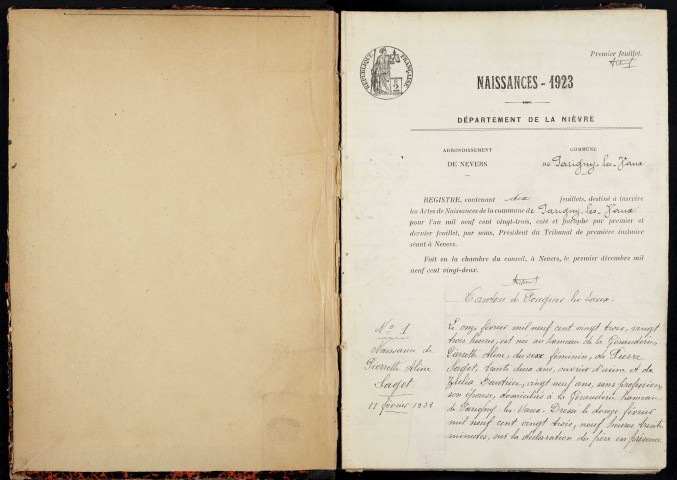 Premier feuillet.
RÉPUBLIQUE FRANÇAISE
NAISSANCES - 1923
DÉPARTEMENT DE LA NIÈVRE
ARRONDISSEMENT
DE NEVERS
COMMUNE
DE Parigny-les-Vaux
REGISTRE, contenant six feuillets, destiné à inscrire
les Actes de Naissances de la commune de Parigny-les-Vaux
pour l'an mil neuf cent vingt-trois, coté et paraphé par premier et
dernier feuillet, par nous, Président du Tribunal de première instance
séant à Nevers.
Fait en la chambre du conseil, à Nevers, le premier décembre mil
neuf cent vingt-deux.
Canton de Pougues les Eaux.
No 1
Naissance de
Pierrette Aline
Saget
11 février 1923
Le onze février mil neuf cent vingt trois, vingt
trois heures, est née au hameau de la Gérauderie,
Pierrette Aline, du sexe féminin, de Pierre
Saget, trente deux ans, ouvrier d'usine et de
vingt neuf ans, sans profession,
son épouse, domiciliés à la Gérauderie hameau
de Parigny-les-Vaux. Dressé le douze février
mil neuf cent vingt trois, neuf heures trente
minutes, sur la déclaration du père en présence